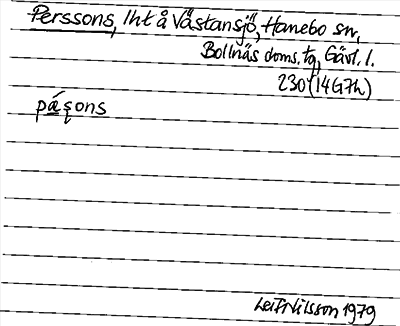 Perssons, lht å Västansjö, Hanebo sn,
Bollnäs doms. tg, Gävl. l.
230 (14G7h)
pá̱ʂons
Leif Nilsson 1979